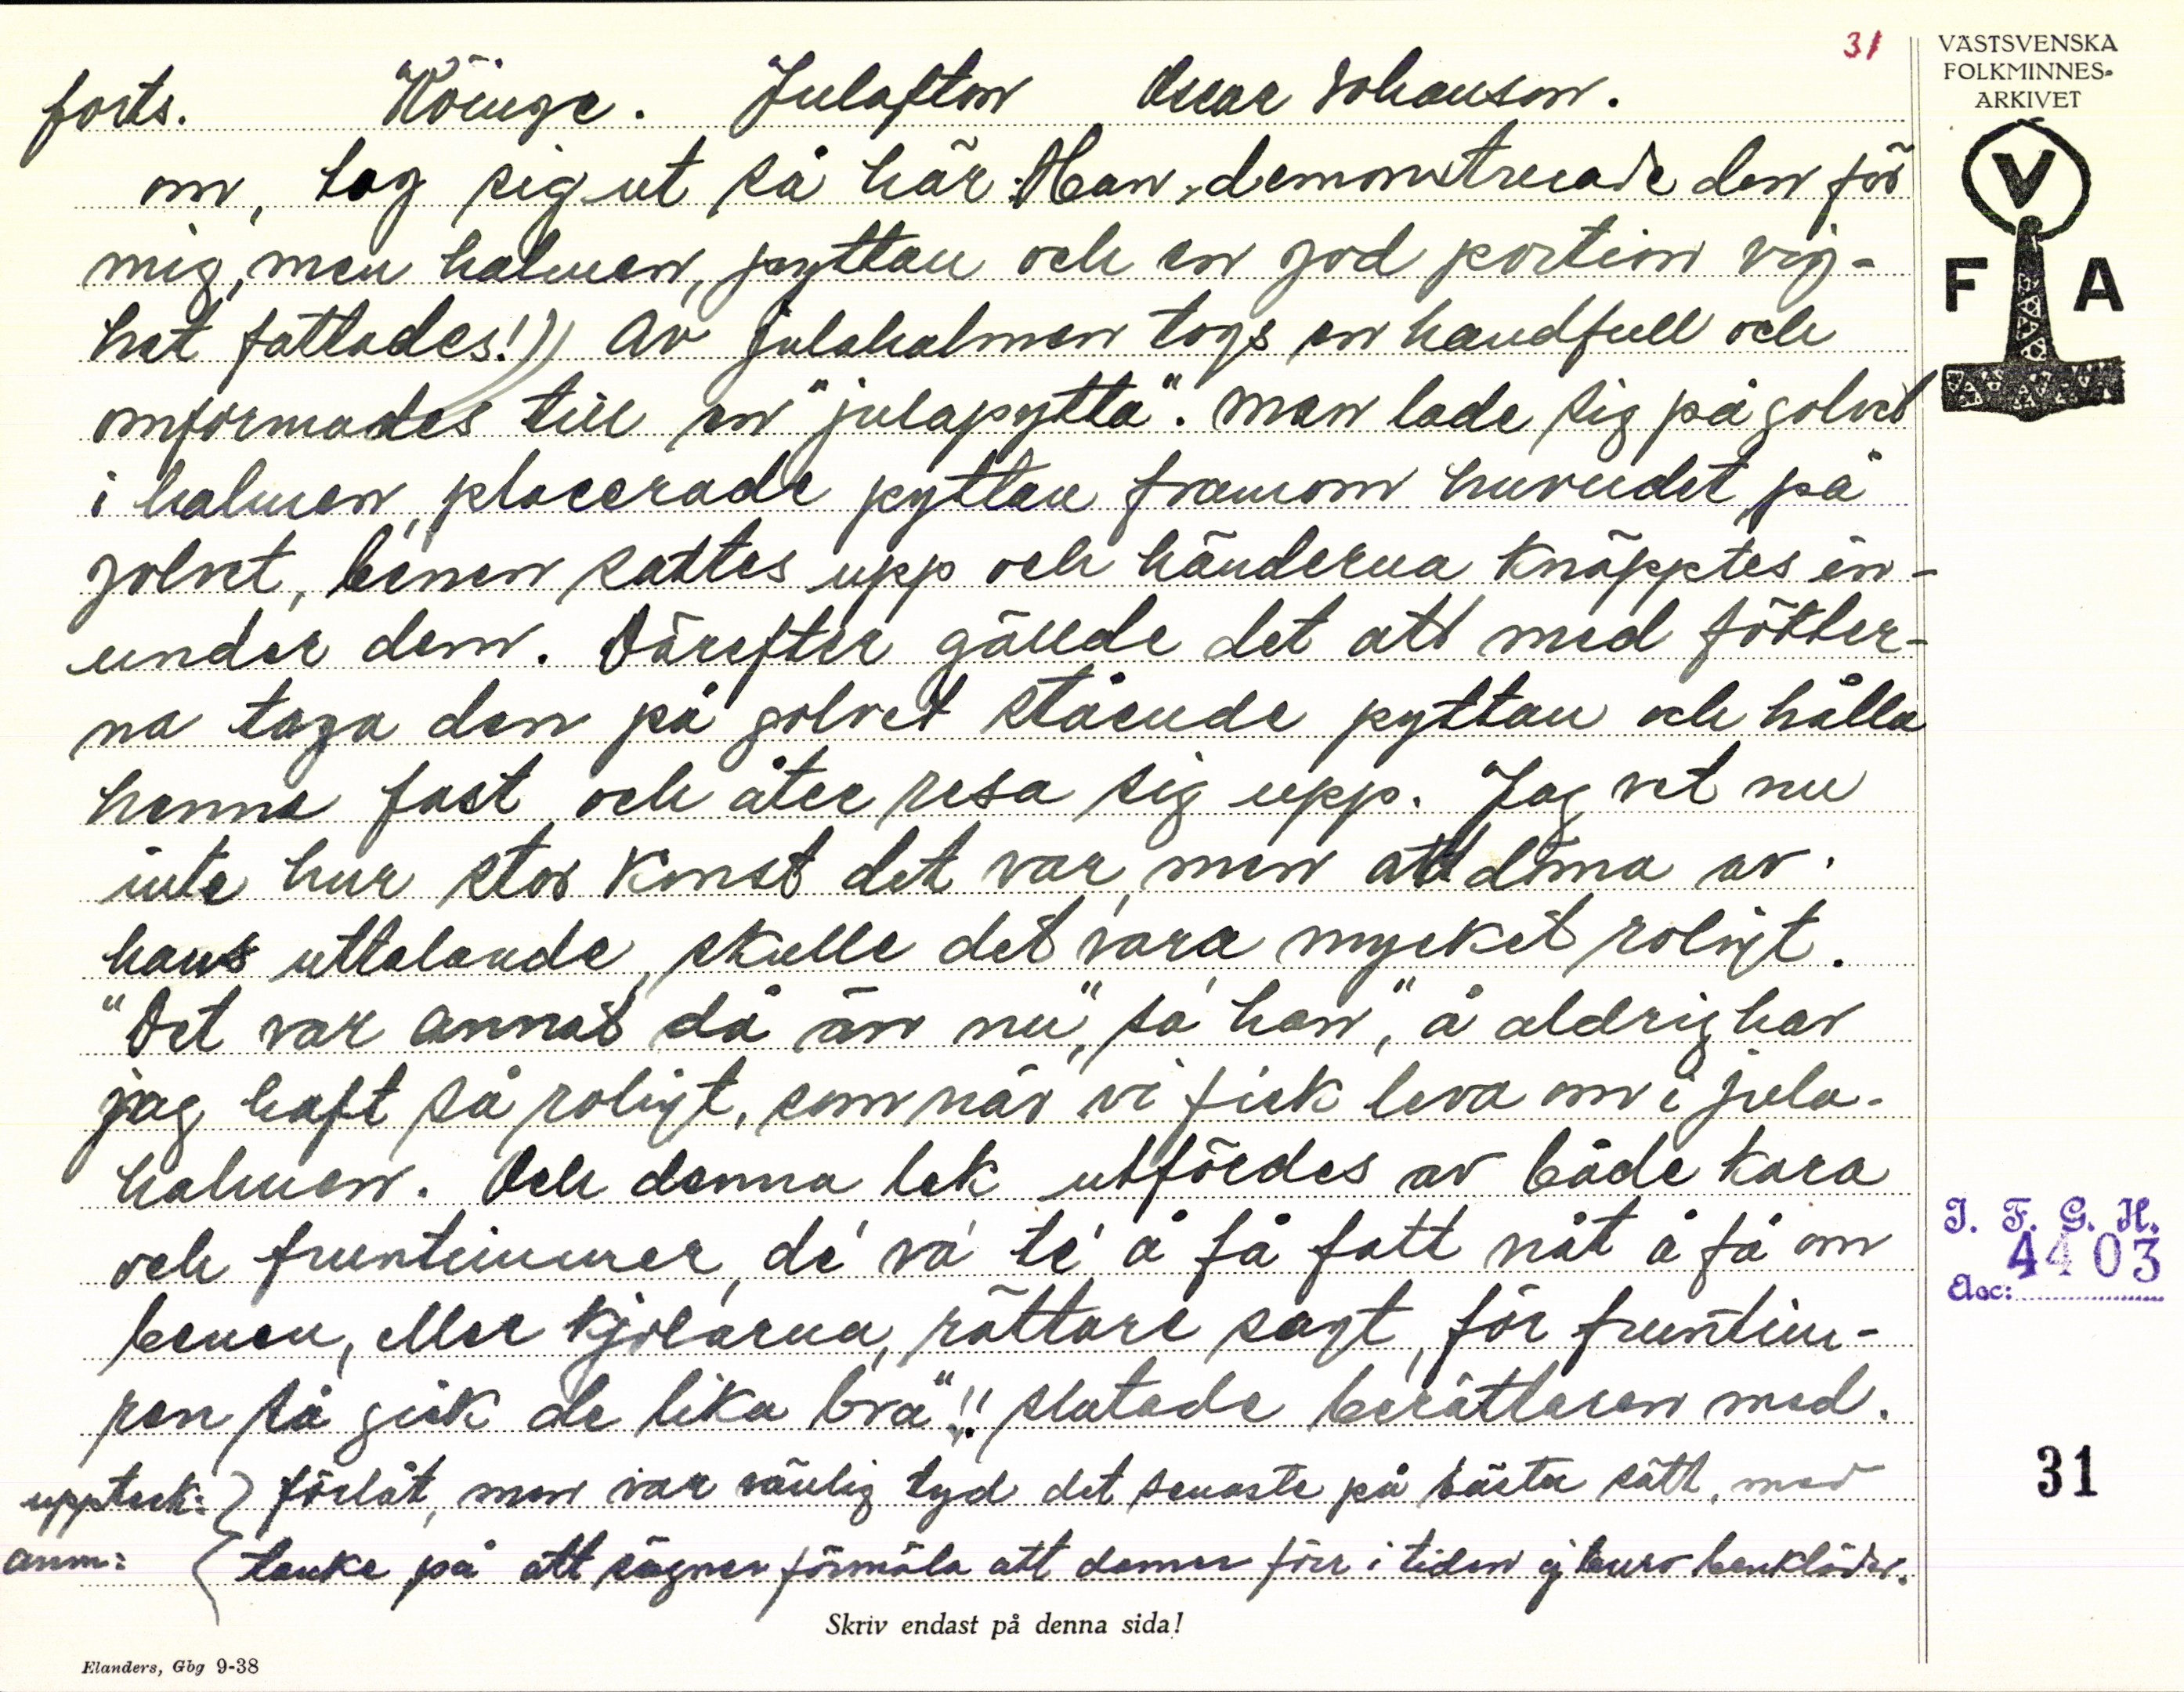 31
VÄSTSVENSKA
FOLKMINNES-
ARKIVET
V
F A
forts. Höinge. Julafton Oscar Johanson.
om, tog sig ut så här. Han demonstrerade den för
mig, men halmen, pyttan och en god portion vig-
het fattades!)) Av julahalmen togs en handfull och
omformades till en "julapytta". Man lade sig på golvet
i halmen, placerade pyttan framom huvudet på
golvet, benen sattes upp och händerna knäpptes in-
under dem. Därefter gällde det att med fötter-
na taga den på golvet stående pyttan och hålla
henne fast och åter resa sig upp. Jag vet nu
inte hur stor konst det var, men att döma av
hans uttalande, skulle det vara mycket roligt.
"Det var annat då än nu", sa' han, "å aldrig har
jag haft så roligt, som när vi fick leva om i jula-
halmen. Och denna lek utfördes av både kara
och fruntimmer, de' va' te' å få fatt nåt å få om
benen, eller kjolarna, rättare sagt, för fruntim-
ren så gick de lika bra"!! slutade berättaren med.
uppteck: förlåt, men var vänlig tyd det senaste på bästa sätt, med
anm: tanke på att sägner förmäla att damer förr i tiden ej buro benkläder.
I. F. G. H.
4403
Acc:
31
Skriv endast på denna sida!
Elanders, Gbg 9-38